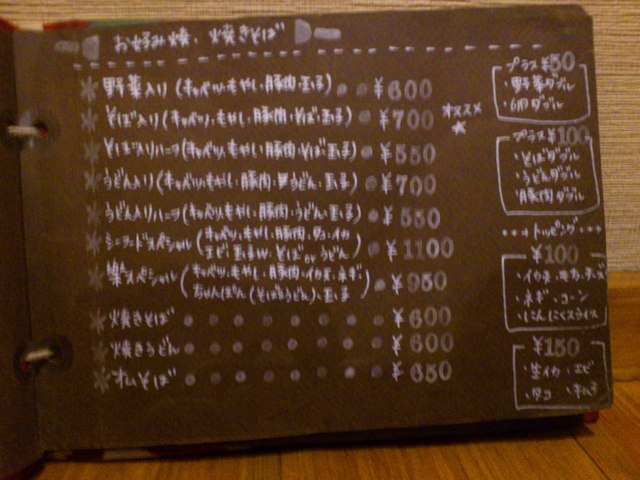 お好み焼、焼きそば
野菜入り(キャベツ・もやし・豚肉・玉子) ¥600
そば入り(キャベツ・もやし・豚肉・そば・玉子) ¥700 オススメ
そば入りハーフ(キャベツ・もやし・豚肉・そば・玉子) ¥550
うどん入り(キャベツ・もやし・豚肉・うどん・玉子) ¥700
うどん入りハーフ(キャベツ・もやし・豚肉・うどん・玉子) ¥550
シーフードスペシャル(キャベツ・もやし・豚肉・タコ・イカ
エビ・玉子W・そばorうどん) ¥1100
楽スペシャル(キャベツ・もやし・豚肉・イカ天・ネギ
ちゃんぽん(そばうどん)・玉子) ¥950
焼きそば ¥600
焼きうどん ¥600
オムそば ¥650
プラス¥50
・野菜ダブル
・卵ダブル
プラス¥100
・そばダブル
・うどんダブル
・豚肉ダブル
トッピング
¥100
・イカ天・モチ・チーズ
・ネギ・コーン
・にんにくスライス
¥150
・生イカ・エビ
・タコ・キムチ